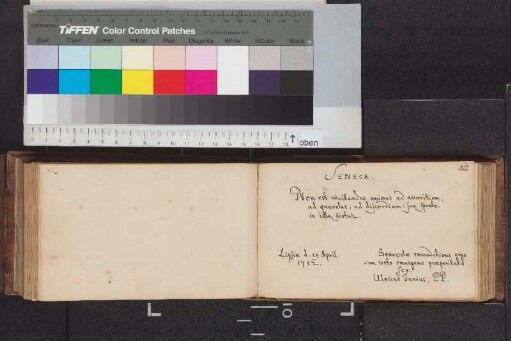 TIFFEN Color Control Patches
Blue Cyan Green Yellow Red Magenta White 3/Color Black
oben
SENECA.
Non est incitandus animus ad avaritiam,
ad querelas, ad discordiam: sua sponte
in ista fertur.
Lipsiæ d. 19 April.
1712.
Benevolæ recordationis ergo
cum voto omnigenæ prosperitatis
scr.
Ulricus Junius, P.P.